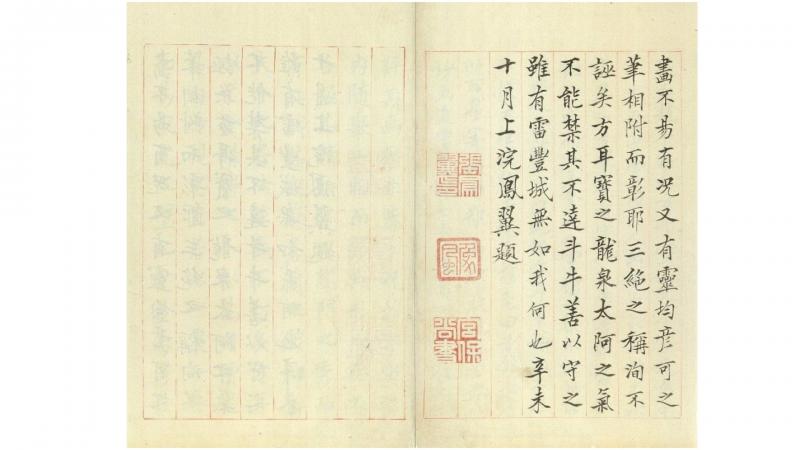 畫不易有况又有靈均彦可之
筆相附而彰耶三絶之稱洵不
誣矣方耳寶之龍泉太阿之氣
不能禁其不達斗牛善以守之
雖有雷豐城無如我何也辛未
十月上浣鳳翼題
張鳳翼印
宮保尚書